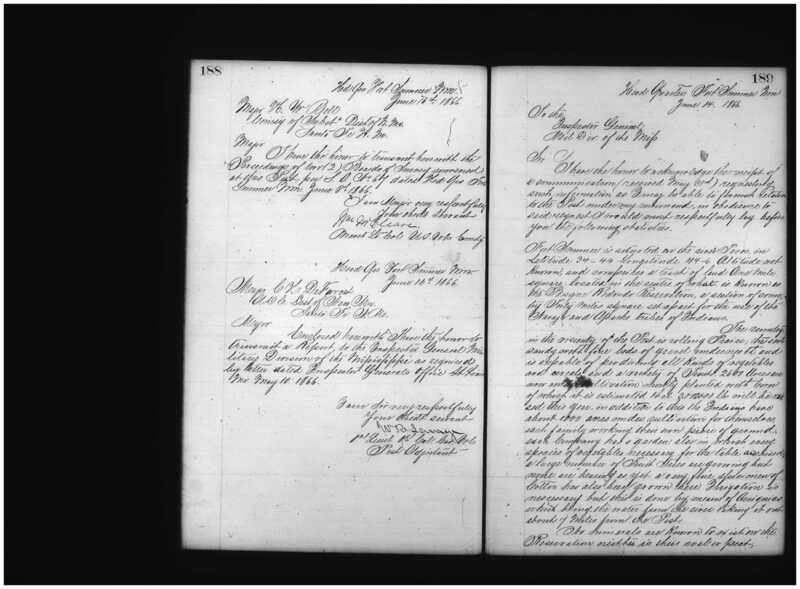 188
Hd Qrs Fort Sumner N.M.
June 14th 1866
Major H. W. Bell
Comsy of Subst. Dist of N. Mx.
Santa Fe N. M.
Major
I have the honor to transmit herewith the
Proceedings of two (2) Boards of Survey convened
at this Post, per S. O. No 64 dated Hd Qrs Fort
Sumner N.M. June 9th 1866.
I am Major very respectfully
Your obdt. Servant
McCleave
Brevet Lt Col U.S. Vols Comdg
Head Qrs Fort Sumner N.M.
June 14th 1866
Major C. H. DeForrest
A.A.A.G. Dist of New Mex.
Santa Fe N.M.
Major
Enclosed herewith I have the honor to
transmit a Report to the Inspector General Mil-
litary Division of the Mississippi as required
by letter dated Inspector Generals Office St. Louis
Mo. May 10. 1866.
I am Sir very respectfully
Your obedt. servant
1st Lieut 1st Cal. Vols
Post Adjutant
189
Head Quarters Fort Sumner N.M.
June 14. 1866
To the
Inspector General,
Mil. Div. of the Miss.
Sir
I have the honor to acknowledge the receipt of
a communication (received May ) requesting
such information as I may be able to furnish relative
to the Post under my command, in obedience to
said request I would most respectfully lay before
you the following
Fort Sumner is situated on the river Pecos, in
Latitude 34-44 Longitude 44-6 Altitude not
known and comprises a tract of land One mile
square, located in the centre of what is known as
the Bosque Redondo Reservation, a section of coun-
try Forty miles square set apart for the use of the
Navajo and Apache tribes of Indians.
The country
in the vicinity of the Post is rolling Prairie, the soil
sandy and
is capable of producing all kinds of vegetables
and cereals and a variety of Fruit. Acres are
now cultivation chiefly planted with Corn
of which it is estimated that will be rai-
sed this year, in addition to this the Indians have
about 1000 acres under cultivation for themselves,
each family working their own piece of ground.
each Company has a garden also in which every
species of vegetables necessary for the table are raised,
a large number of Fruit Trees are growing but
none are bearing as yet. a very fine specimen of
Cotton has also been grown here. Irrigation is
necessary but this is done by means of Acequias
which bring the water from the river taking it out
about 7 Miles from the Post.
No minerals are known to exist on the
Reservation neither is there coal or peat,